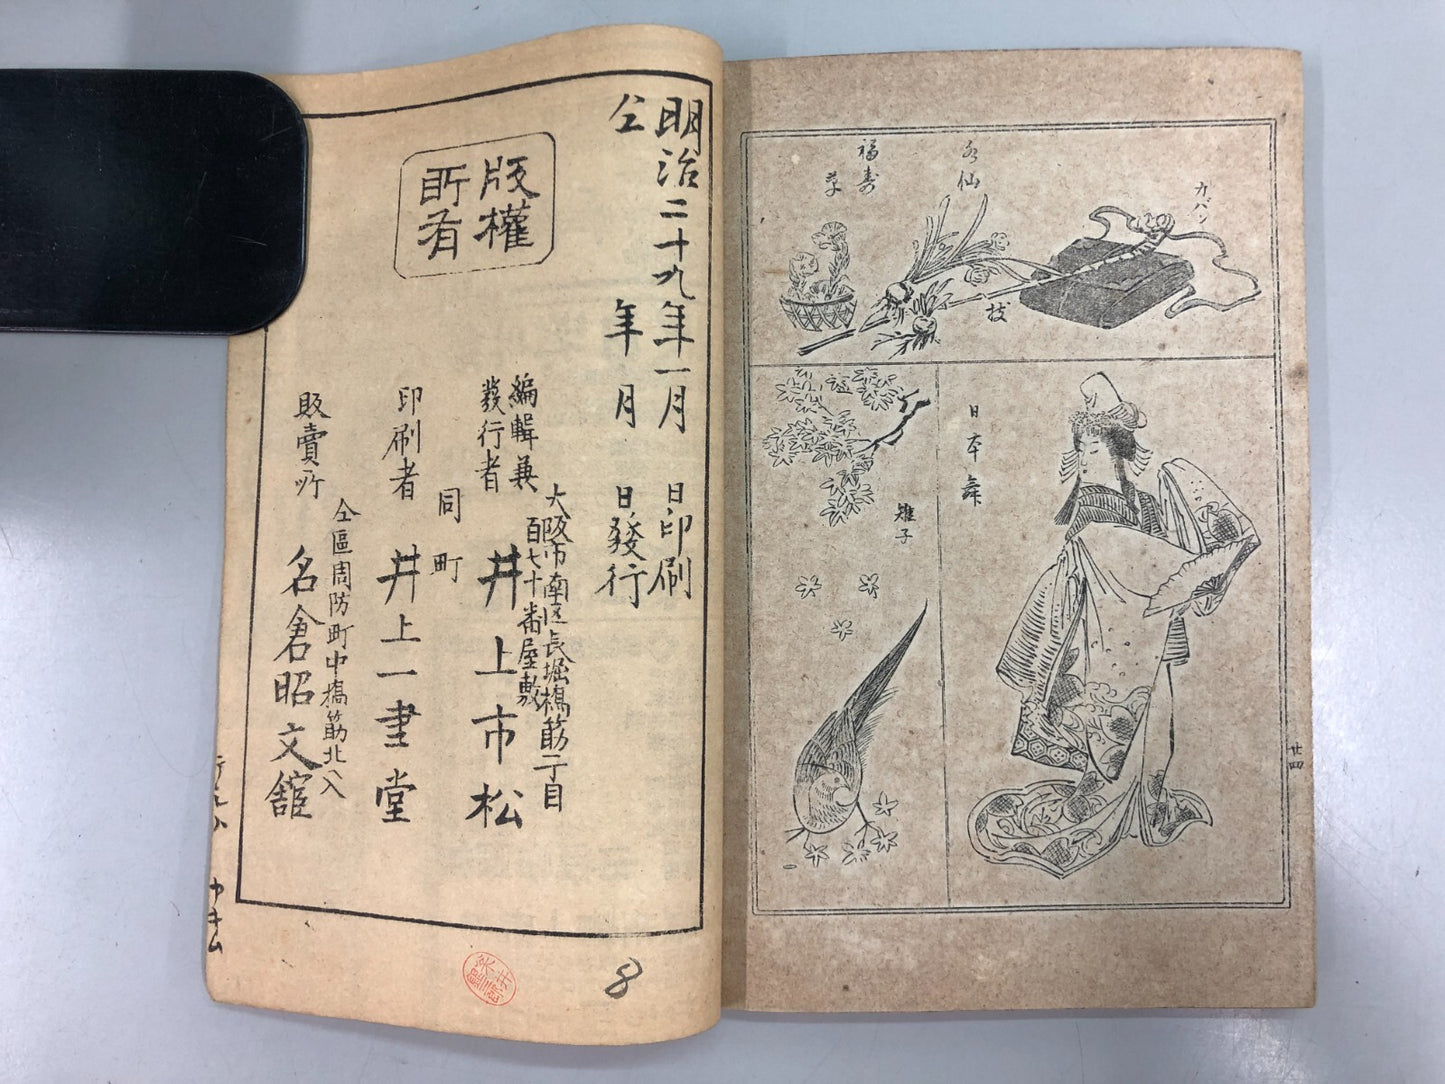 カバン
水仙
福寿
草
枝
日本舞
雉子
廿四
明治二十九年一月 日印刷
仝 年 月 日發行
版權
所有
編輯兼
發行者
大阪市南区長堀橋筋二丁目
百七十番屋敷
井上市松
同町
印刷者
井上一書堂
販賣所
仝區周防町中橋筋北へ入
名倉昭文舘
8